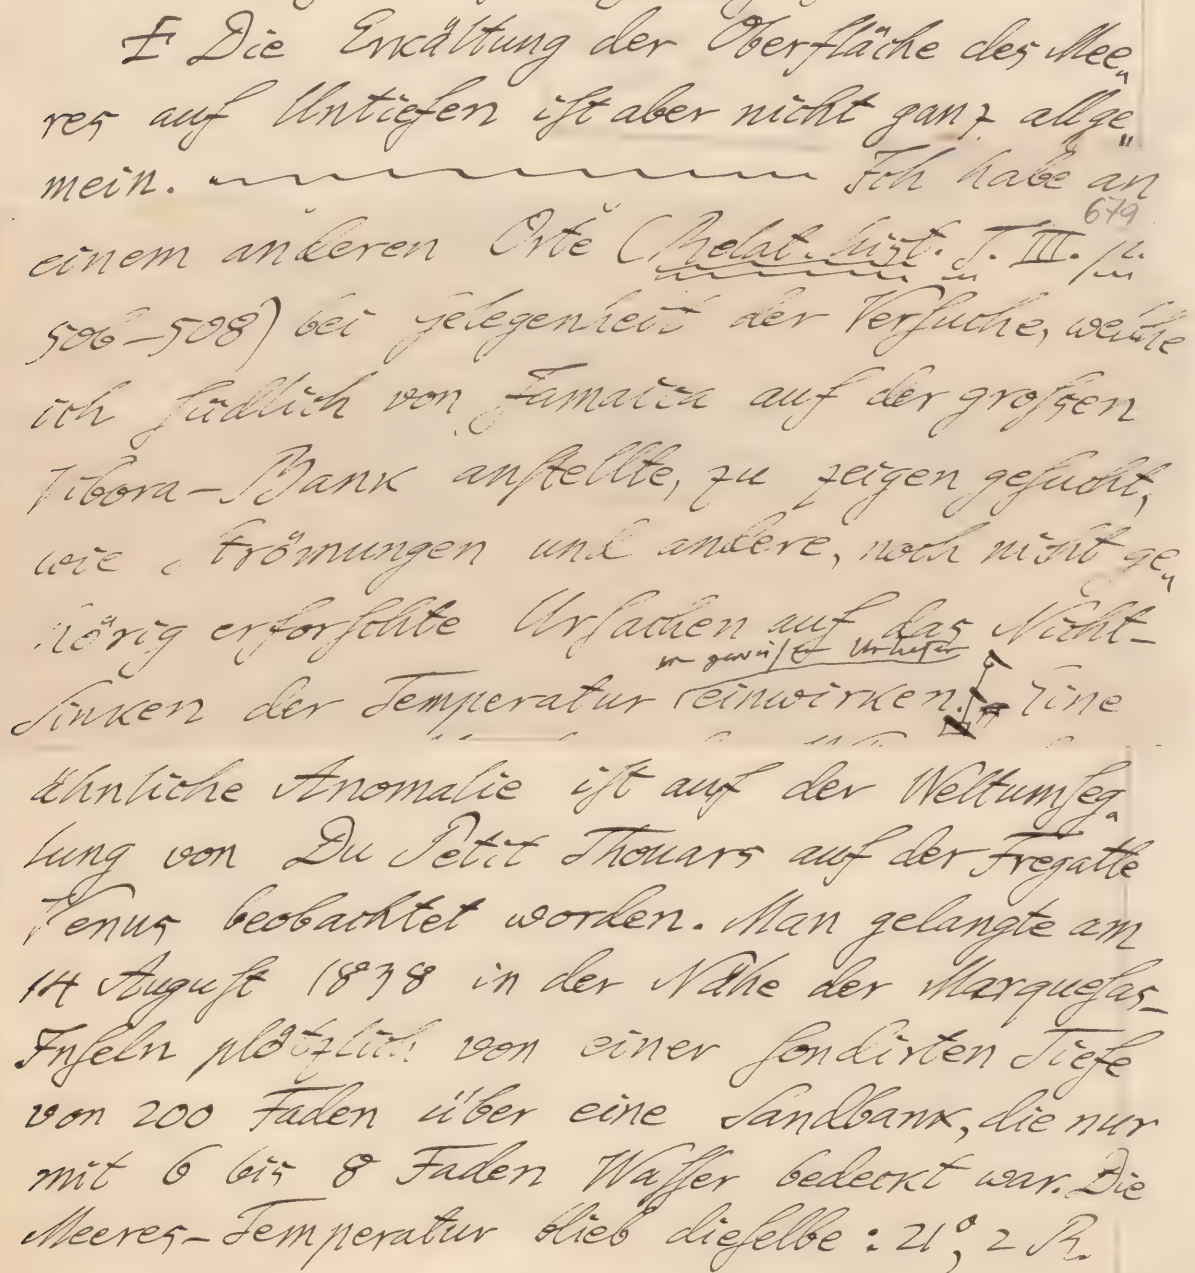 Die Erkältung der Oberfläche des Mee„
res auf Untiefen ist aber nicht ganz allge„
mein. Ich habe an
679
einem anderen Orte (Relat. hist. T. III. p.
506–508) bei gelegenheit der Versuche, welche
ich südlich von Jamaica auf der grossen
Vibora-Bank anstellte, zu zeigen gesucht,
wie Strömungen und andere, noch nicht ge„
hörig erforschte Ursachen auf das Nicht-
in gewisser
Sinken der Temperatur einwirken. Eine
ähnliche Anomalie ist auf der Weltumseg„
lung von Du Petit Thouars auf der Fregatte
Venus beobachtet worden. Man gelangte am
14 August 1838 in der Nähe der Marquesas-
Inseln plötzlich von einer sondirten Tiefe
von 200 Faden über eine Sandbank, die nur
mit 6 bis 8 Faden Wasser bedeckt war. Die
Meeres-Temperatur blieb dieselbe: 21°,2 R.